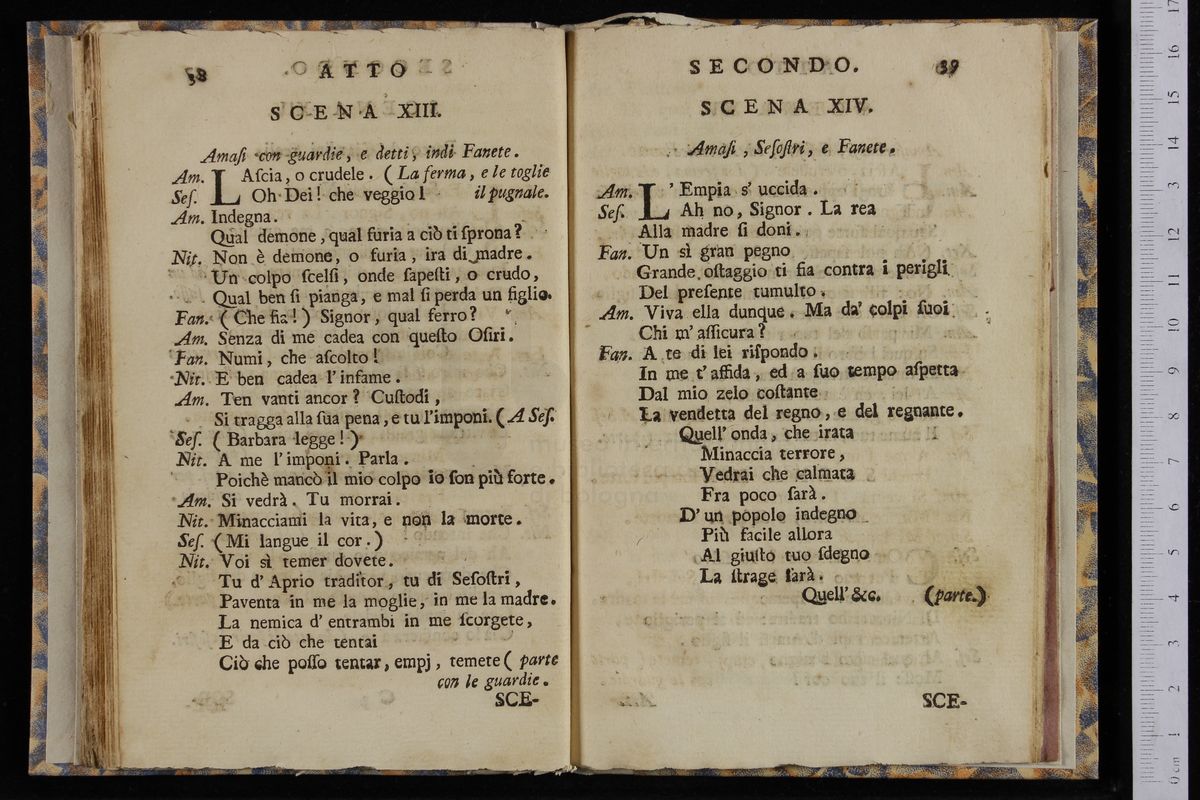 58 ATTO
SCENA XIII.
Amaſi con guardie, e detti, indi Fanete.
Am. LAſcia, o crudele. (La ferma, e le toglie
Seſ. Oh Dei! che veggio! il pugnale.
Am. Indegna.
Qual demone, qual furia a ciò ti ſprona?
Nit. Non è demone, o furia, ira di madre.
Un colpo ſcelſi, onde ſapeſti, o crudo,
Qual ben ſi pianga, e mal ſi perda un figlio.
Fan. (Che fia!) Signor, qual ferro?
Am. Senza di me cadea con queſto Oſiri.
Fan. Numi, che aſcolto!
Nit. E ben cadea l'infame.
Am. Ten vanti ancor? Cuſtodi,
Si tragga alla ſua pena, e tu l'imponi. (A Seſ.
Seſ. (Barbara legge!)
Nit. A me l'imponi. Parla.
Poichè mancò il mio colpo io ſon più forte.
Am. Si vedrà. Tu morrai.
Nit. Minacciami la vita, e non la morte.
Seſ. (Mi langue il cor.)
Nit. Voi sì temer dovete.
Tu d'Aprio traditor, tu di Seſoſtri,
Paventa in me la moglie, in me la madre.
La nemica d'entrambi in me ſcorgete,
E da ciò che tentai
Ciò che poſſo tentar, empj, temete (parte
con le guardie.
SCE-
SECONDO. 59
SCENA XIV.
Amaſi, Seſoſtri, e Fanete.
Am. L'Empia s'uccida.
Seſ. Ah no, Signor. La rea
Alla madre ſi doni.
Fan. Un sì gran pegno
Grande oſtaggio ti fia contra i perigli
Del preſente tumulto.
Am. Viva ella dunque. Ma da' colpi ſuoi
Chi m'aſſicura?
Fan. A te di lei riſpondo.
In me t'affida, ed a ſuo tempo aſpetta
Dal mio zelo coſtante
La vendetta del regno, e del regnante.
Quell'onda, che irata
Minaccia terrore,
Vedrai che calmata
Fra poco ſarà.
D'un popolo indegno
Più facile allora
Al giuſto tuo ſdegno
La ſtrage ſarà.
Quell' &c. (parte.)
SCE-